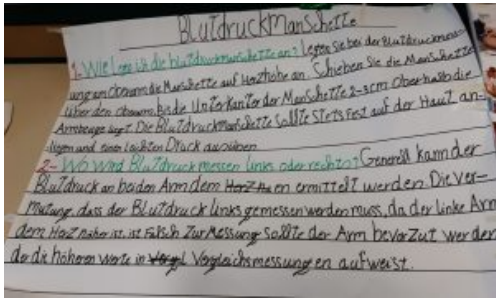 Blutdruckmanschette
1. Wie lege ich die blutdruckmanschette an? Legen Sie bei der Blutdruckmess
ung am Oberarm die Manschette auf Herzhöhe an. Schieben Sie die Manschette
über den Oberarm, bis die Unterkante der Manschette 2-3cm Oberhalb die
Armbeuge liegt. Die Blutdruckmanschette sollte stets fest auf der Haut an-
liegen und einen leichten Druck ausüben
2- Wo wird Blutdruck messen links oder rechts? Generell kann der
Blutdruck an beiden Arm dem en ermittelt werden. Die Ver-
mutung, dass der Blutdruck links gemessen werden muss, da der linke Arm
dem Herz näher ist, ist Falsch Zur Messung sollte der Arm bevorzut werden
der die höheren Werte in Vergleichsmessungen aufweist.